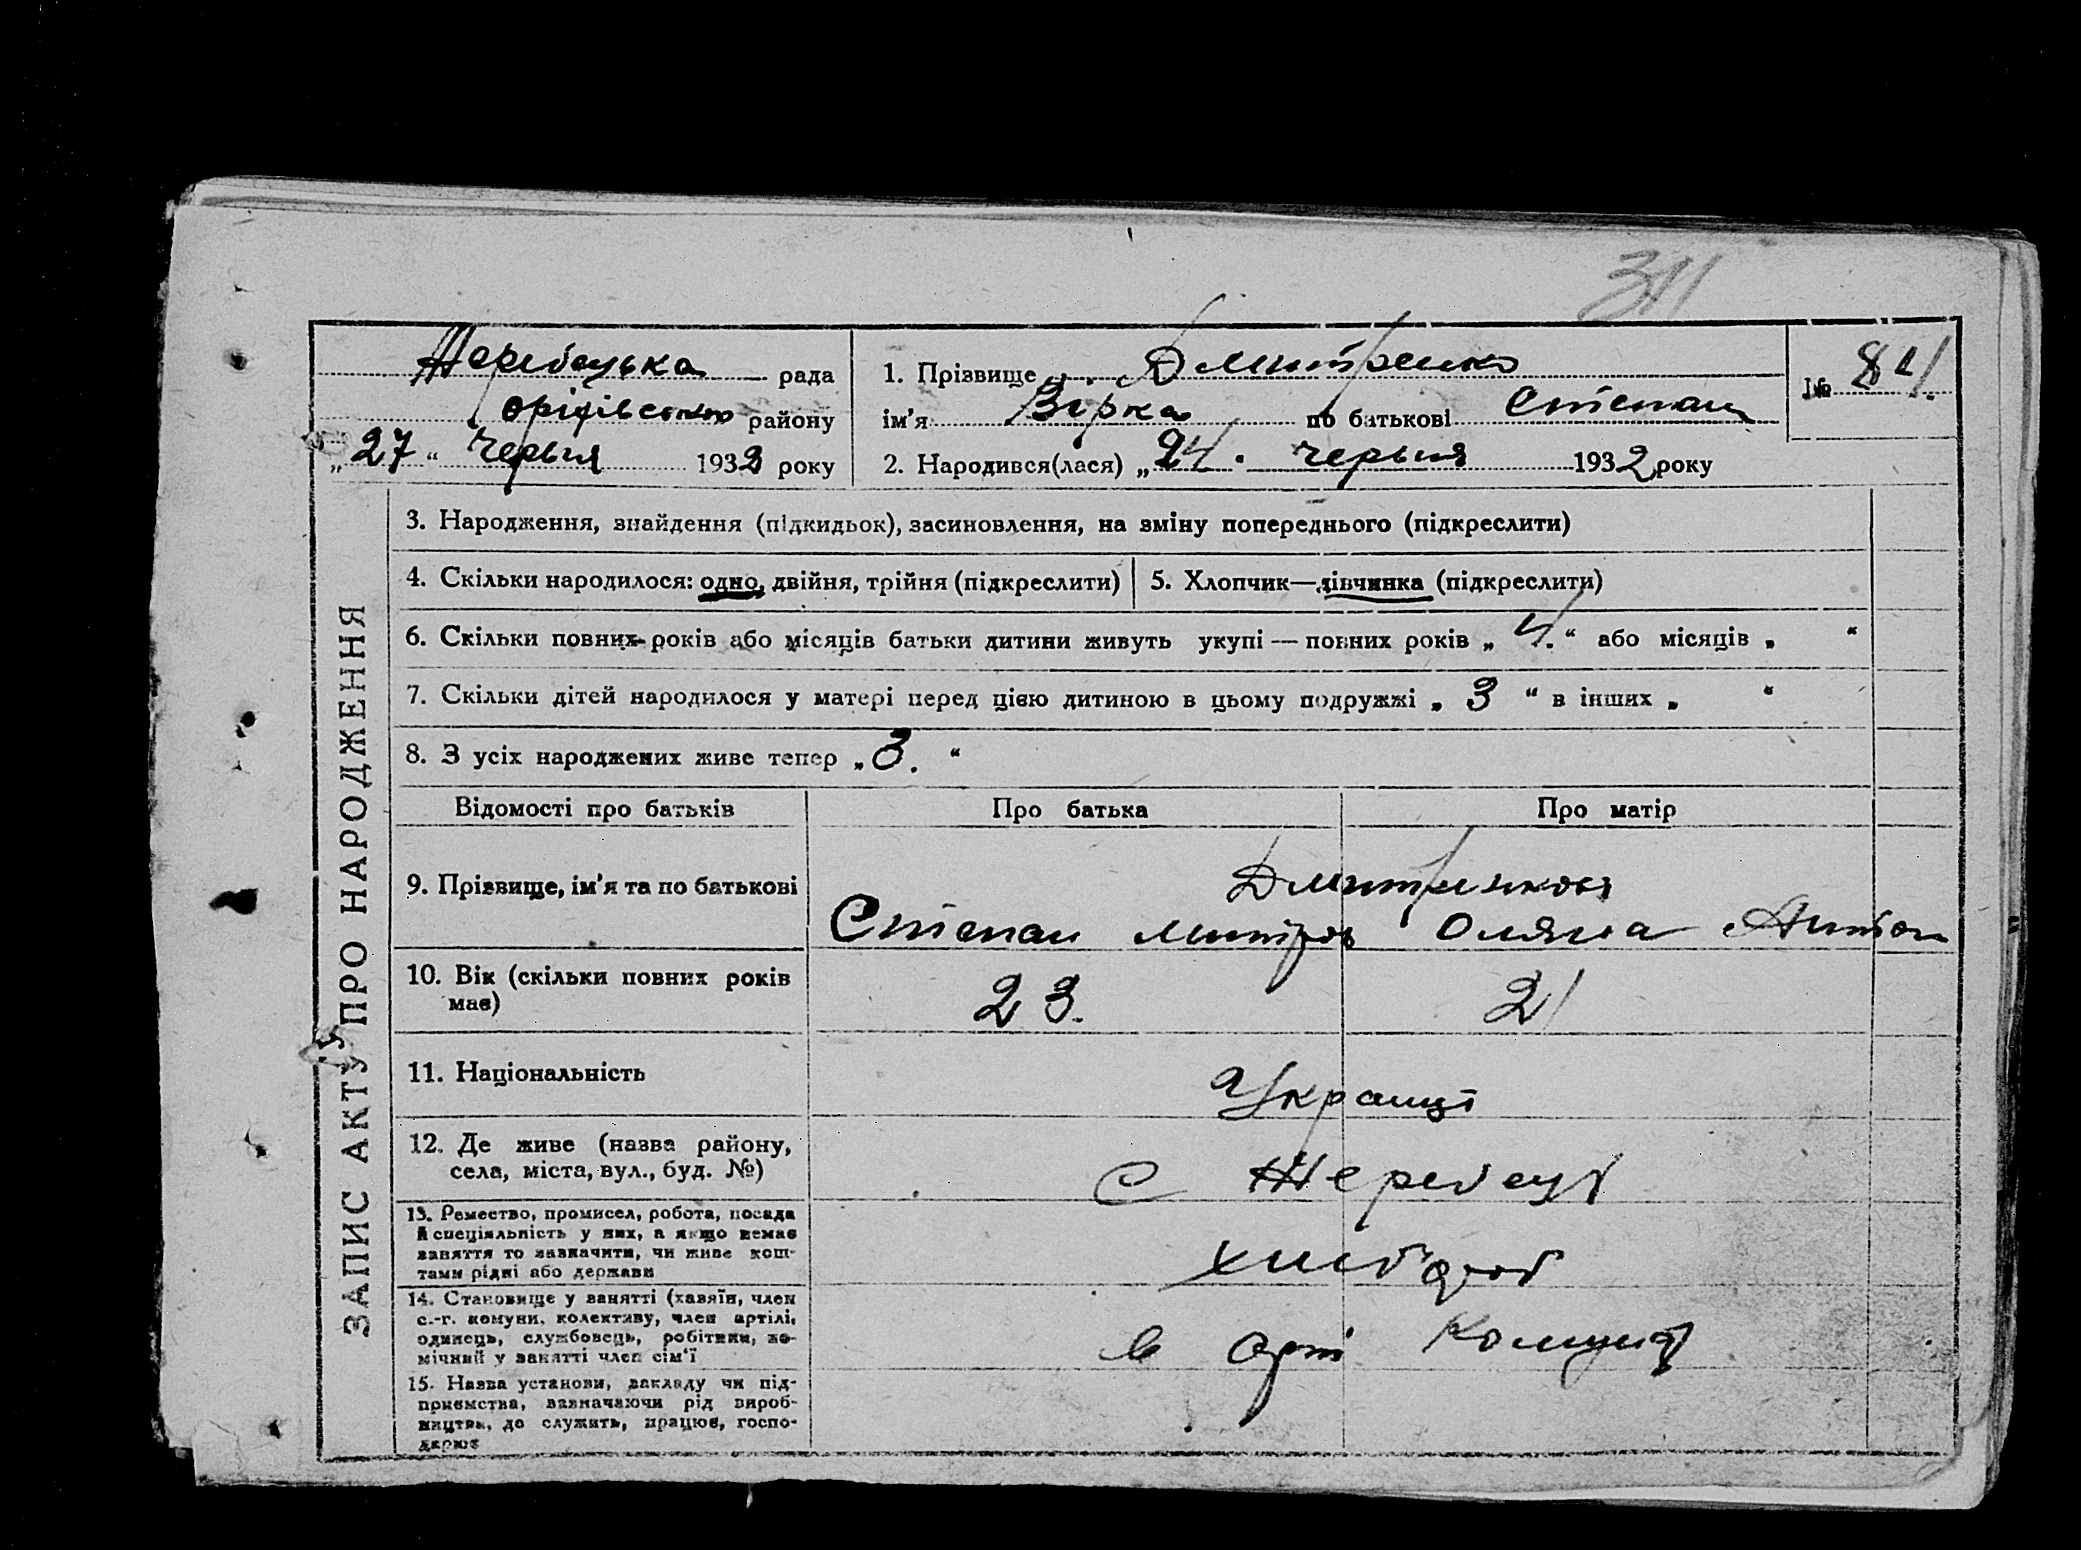 311
Жеребецька рада
Оріхівського району
„27“ Червня 1932 року
1. Прізвище Дмитренко
ім'я Вірка по батькові Степан
№ 84
2. Народився(лася) „24. червня 1932 року
ЗАПИС АКТУ ПРО НАРОДЖЕННЯ
3. Народження, знайдення (підкидьок), засиновлення, на зміну попереднього (підкреслити)
4. Скільки народилося: одно, двійня, трійня (підкреслити)
5. Хлопчик—дівчинка (підкреслити)
6. Скільки повних років або місяців батьки дитини живуть укупі — повних років „ 4. “ або місяців „ “
7. Скільки дітей народилося у матері перед цією дитиною в цьому подружжі „ 3 “ в інших „ “
8. З усіх народжених живе тепер „3. “
Відомості про батьків
Про батька
Про матір
9. Прізвище, ім'я та по батькові
Степан Митров Оляна Антон
10. Вік (скільки повних років
має)
23.
21
11. Національність
Украинці
12. Де живе (назва району,
села, міста, вул., буд. №)
с Жеребець
13. Ремество, промисел, робота, посада
й спеціяльність у них, а якщо немає
заняття то зазначити, чи живе кош-
тами рідні або держави
хлібороб
14. Становище у занятті (хазяїн, член
с.-г. комуни, колективу, член артілі,
одинець, службовець, робітник, по-
мічний у занятті член сім'ї
в арт
15. Назва установи, закладу чи під-
приємства, зазначаючи рід вироб-
ництва, де служить, працює, госпо-
дарює